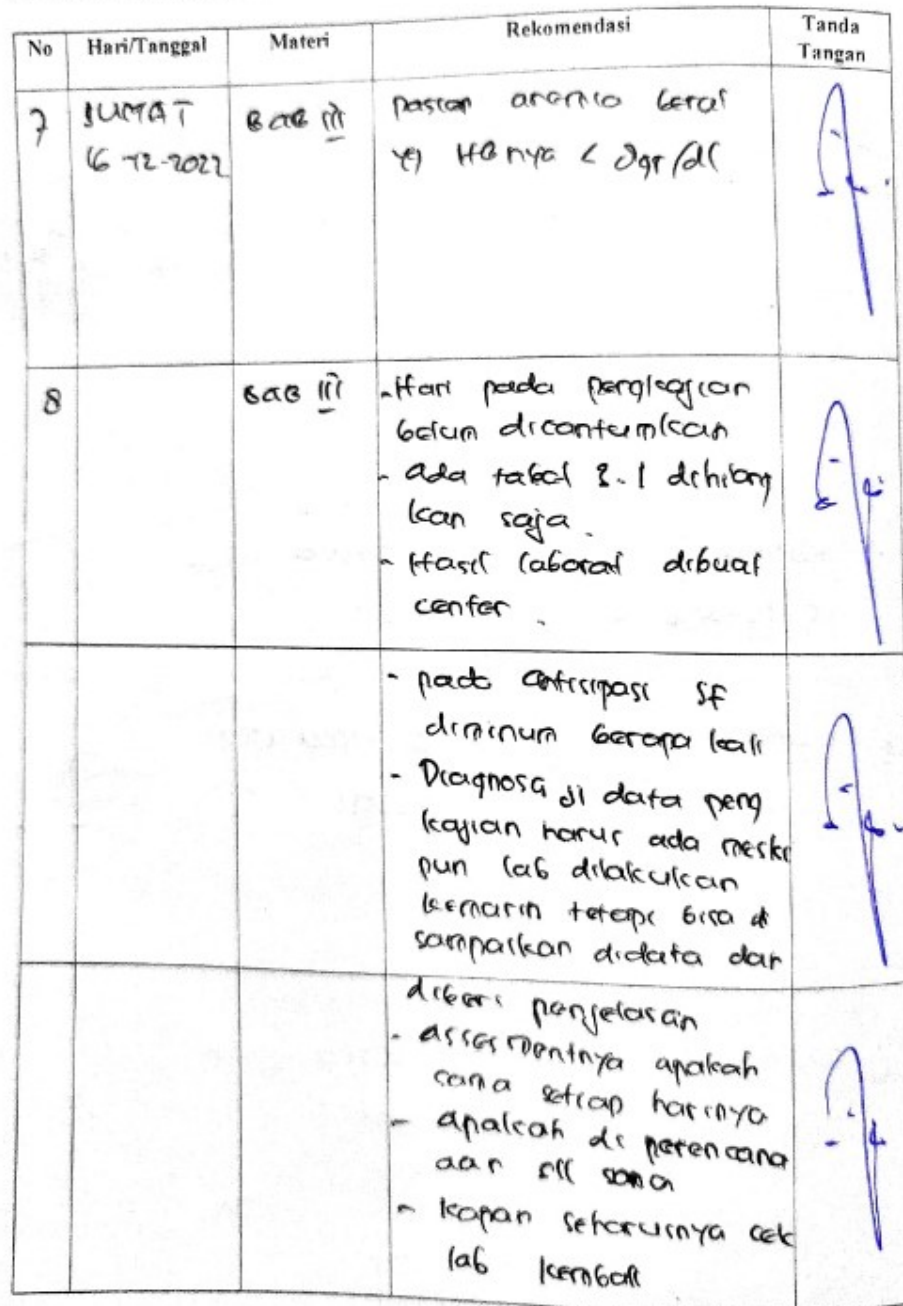 No Hari/Tanggal Materi Rekomendasi Tanda Tangan
7 JUMAT BAB III pasien anemia berat
16-12-2022 yg HB nya < 8gr/dl
8 BAB III - Hari pada pengkajian
belum dicantumkan
- ada tabel 3.1 dihilang
kan saja.
- Hasil laborat dibuat
center.
- pada antisipasi SF
diminum berapa kali
- Diagnosa di data peng
kajian harus ada meski
pun lab dilakukan
kemarin tetapi bisa di
sampaikan didata dan
diberi penjelasan
- assesmentnya apakah
sama setiap harinya
- apakah di perencana
aan sama
- kapan seharusnya cek
lab kembali